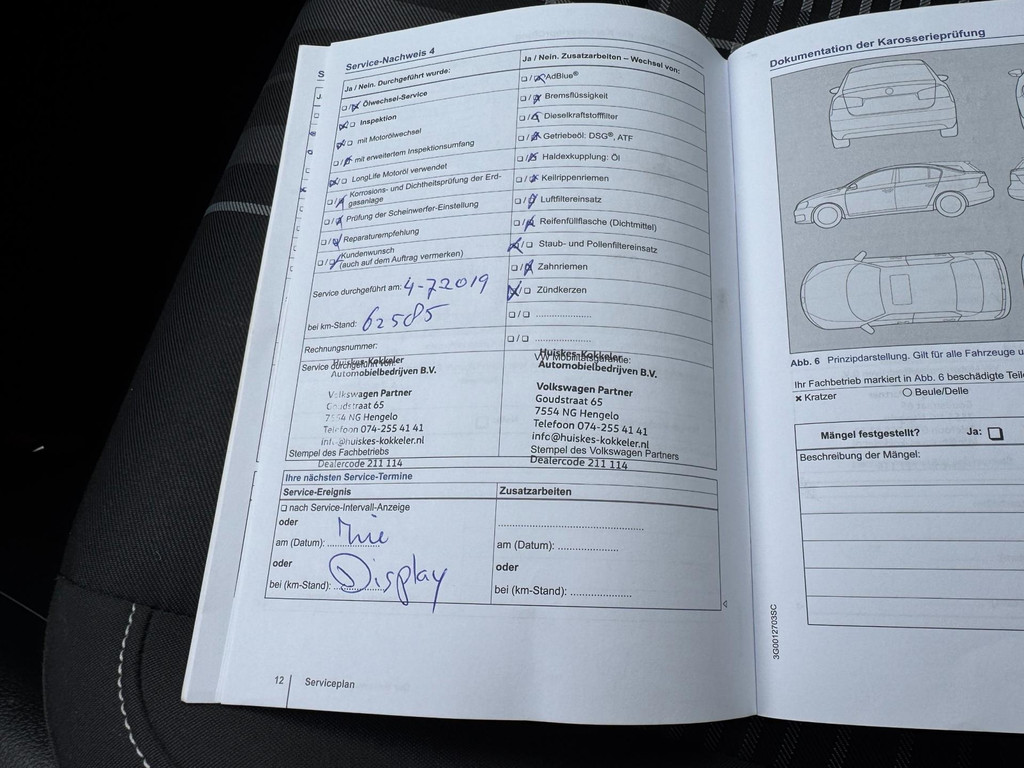 Service-Nachweis 4
Ja / Nein. Durchgeführt wurde:
❏/❏ Ölwechsel-Service
❏/❏ Inspektion
❏/❏ mit Motorölwechsel
❏/❏ mit erweitertem Inspektionsumfang
❏/❏ LongLife Motoröl verwendet
❏/❏ Korrosions- und Dichtheitsprüfung der Erd-
gasanlage
❏/❏ Prüfung der Scheinwerfer-Einstellung
❏/❏ Reparaturempfehlung
❏/❏ Kundenwunsch
(auch auf dem Auftrag vermerken)
Service durchgeführt am: 4-7-2019
bei km-Stand: 62585
Rechnungsnummer:
Service durchgeführt von:
Huiskes-Kokkeler
Automobielbedrijven B.V.
Volkswagen Partner
Goudstraat 65
7554 NG Hengelo
Telefoon 074-255 41 41
info@huiskes-kokkeler.nl
Stempel des Fachbetriebs
Dealercode 211 114
Ja / Nein. Zusatzarbeiten – Wechsel von:
❏/❏ AdBlue®
❏/❏ Bremsflüssigkeit
❏/❏ Dieselkraftstofffilter
❏/❏ Getriebeöl: DSG®, ATF
❏/❏ Haldexkupplung: Öl
❏/❏ Keilrippenriemen
❏/❏ Luftfiltereinsatz
❏/❏ Reifenfüllflasche (Dichtmittel)
❏/❏ Staub- und Pollenfiltereinsatz
❏/❏ Zahnriemen
❏/❏ Zündkerzen
❏/❏ ......................
❏/❏ ......................
VW Mobilitätsgarantie:
Huiskes-Kokkeler
Automobielbedrijven B.V.
Volkswagen Partner
Goudstraat 65
7554 NG Hengelo
Telefoon 074-255 41 41
info@huiskes-kokkeler.nl
Stempel des Volkswagen Partners
Dealercode 211 114
Ihre nächsten Service-Termine
Service-Ereignis
❏ nach Service-Intervall-Anzeige
oder
am (Datum):
oder
bei (km-Stand): Display
Zusatzarbeiten
am (Datum): ..................
oder
bei (km-Stand): ..................
12 Serviceplan
Dokumentation der Karosserieprüfung
Abb. 6 Prinzipdarstellung. Gilt für alle Fahrzeuge
Ihr Fachbetrieb markiert in Abb. 6 beschädigte
× Kratzer ○ Beule/Delle
Mängel festgestellt? Ja: ❏
Beschreibung der Mängel:
3G0012703SC